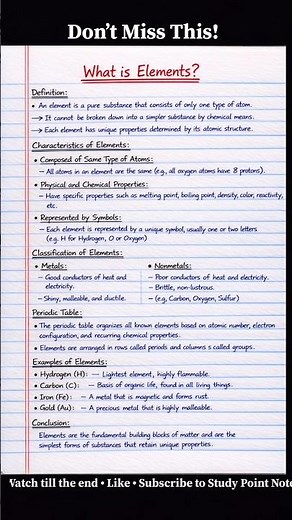 Don't Miss This!
What is Elements?
Definition:
• An element is a pure substance that consists of only one type of atom.
→ It cannot be broken down into a simpler substance by chemical means.
→ Each element has unique properties determined by its atomic structure.
Characteristics of Elements:
• Composed of Same Type of Atoms:
– All atoms in an element are the same (e.g., all oxygen atoms have 8 protons).
• Physical and Chemical Properties:
– Have specific properties such as melting point, boiling point, density, color, reactivity,
etc.
• Represented by Symbols:
– Each element is represented by a unique symbol, usually one or two letters
(e.g. H for Hydrogen, O or Oxygen)
Classification of Elements:
• Metals:
– Good conductors of heat and
electricity.
– Shiny, malleable, and ductile.
• Nonmetals:
– Poor conductors of heat and electricity.
– Brittle, non-lustrous.
– (e.g, Carbon, Oxygen, Sulfur)
Periodic Table:
• The periodic table organizes all known elements based on atomic number, electron
configuration, and recurring chemical properties.
• Elements are arranged in rows called periods and column s called groups.
Examples of Elements:
• Hydrogen (H): — Lightest element, highly flammable.
• Carbon (C): – Basis of organic life, found in all living things.
• Iron (Fe): – A metal that is magnetic and forms rust.
• Gold (Au): – A precious metal that is highly malleable.
Conclusion:
Elements are the fundamental building blocks of matter and are the
simplest forms of substances that retain unique properties.
Vatch till the end • Like • Subscribe to Study Point Note